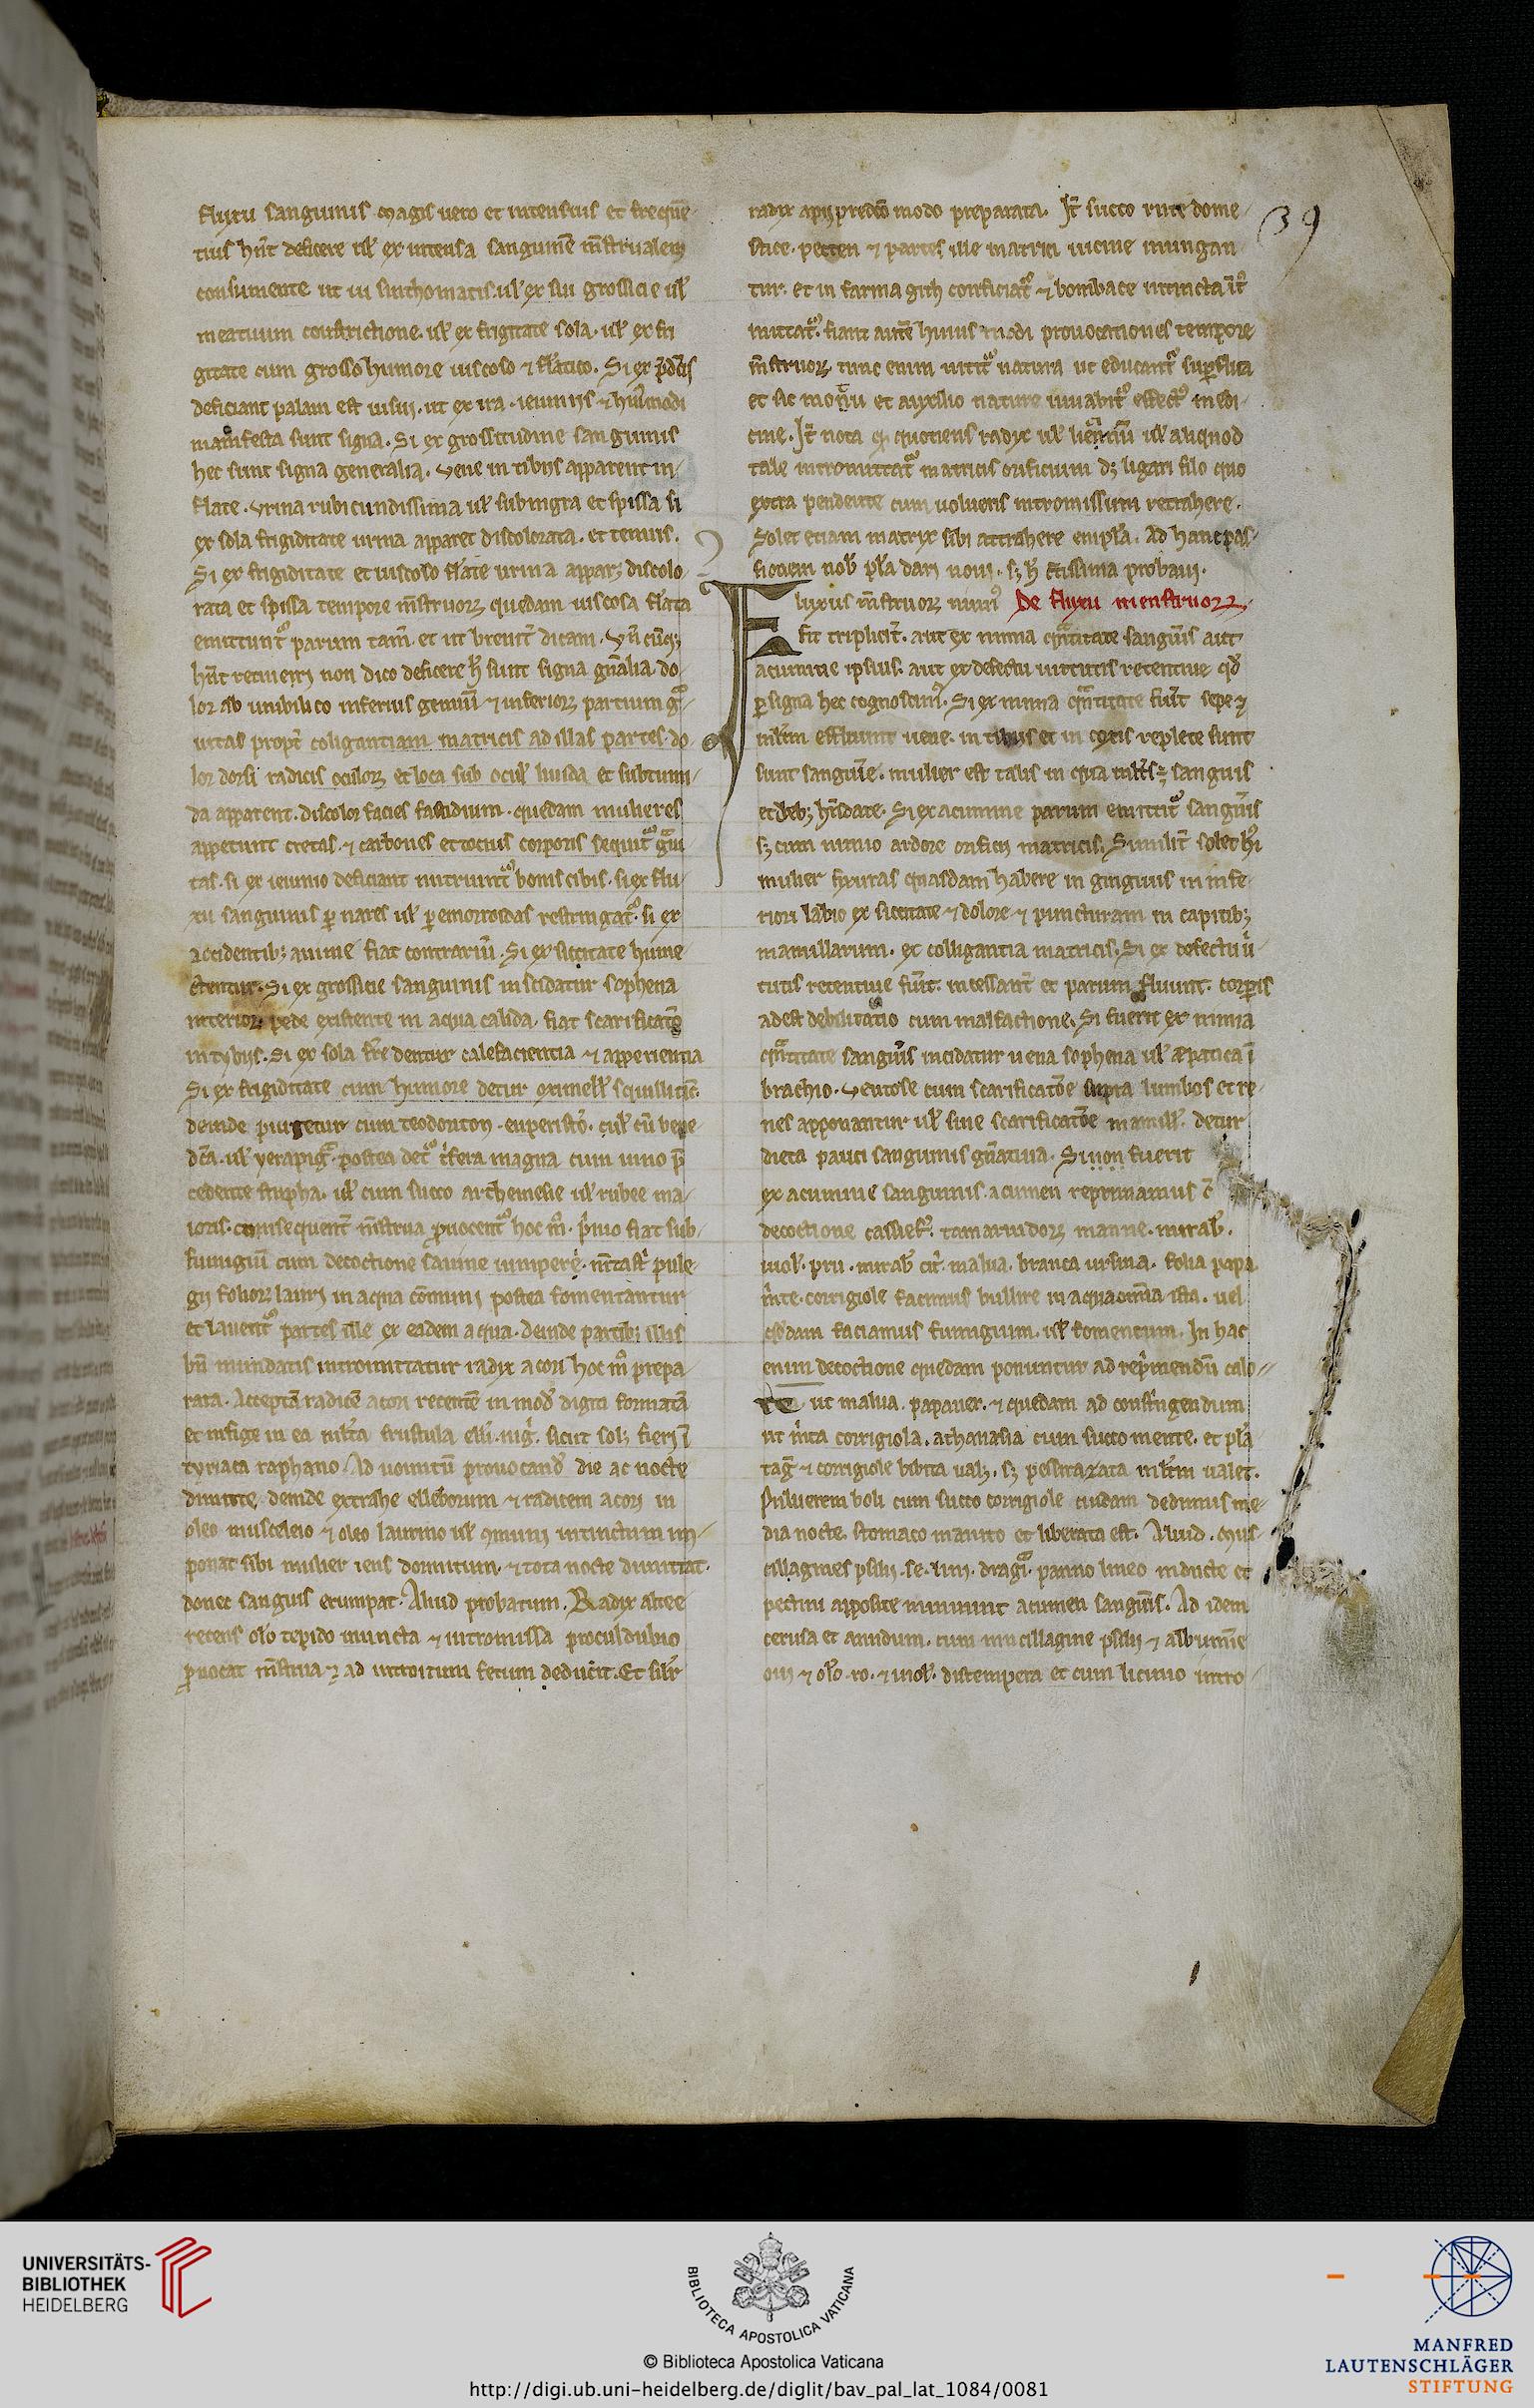 fluxu sanguinis. magis uero et intensius et freque᷑
tius hn̄t deficere ul᷑ ex intensa sanguinē m̄strualem
consumente ut in sinthomatis. ul᷑ ex sui grossicie ul᷑
meatuum constrictione. ul᷑ ex frigitate sola. ul᷑ ex fri
gitate cum grosso humore uiscoso ⁊ fl̄atico. Si ex p̄dc̄is
deficiant palam est uisui. ut ex ira. ieiuniis ⁊ hui᷒modi
manifesta sunt signa. Si ex grossitudine sanguinis
hec sunt signa generalia. Vene in tibiis apparent in
flate. Vrina rubicundissima ul᷑ subnigra et spissa si
ex sola frigiditate urina apparet discolorata. et tenuis.
Si ex frigiditate et uiscoso fl̄ate urina appar; discolo
rata et spissa tempore m̄struoꝝ quedam uiscosa fl̄ata
emittunt᷑ parum tam̄. et ut breuit᷑ dicam.
hn̄t retineri non dico deficere h̄ sunt signa gn̄alia. do
lor ab umbilico inferius
uitas propt᷑ coligantiam matricis ad illas partes. do
lor dorsi radicis oculoꝝ et loca sub ocul᷑ liuida et subtumi
da apparent. discolor facies fastidium. quedam mulieres
appetunt cretas. ⁊ carbones et tocius corporis sequit᷑ g̃ui
tas. si ex ieiunio deficiant nutriunt᷑ bonis cibis. si ex flu
xu sanguinis ꝑ nares ul᷑ ꝑ emorroidas restringat᷑. si ex
accidentib; anime fiat contrariū. Si ex siccitate hume
ctentur. Si ex grossicie sanguinis inscidatur sophena
interior pede existente in aqua calida. fiat scarificatō
in tybiis. Si ex sola fr̄e dentur calefacientia ⁊ apperientia
Si ex frigiditate cum humore detur oximell᷑ squillitic̄.
deinde purgetur cum teodoriton. euperisto᷒. ul᷑ cū bene
dc̄a. ul᷑ yerapig᷑. postea det᷑ t᷑fera magna cum uino p̄
cedente stupha. ul᷑ cum succo archemesie ul᷑ rubee ma
ioris. consequent᷑ m̄strua ꝓuocent᷑ hoc m̊. primo fiat sub
fumigiū cum decoctione sauine iuniperi. pule
gii folioꝝ lauri in aqua cōmuni postea fomentantur
et lauent᷑ partes ille ex eadem aqua. deinde partib; illis
bn̄ mundatis intromittatur radix acori hoc m̊ prepa
rata. Acceptā radicē acori recentē in mod᷑ digiti formatā
et infige in ea ml᷑ta frustula elli. nig᷑. sicut sol; fieri ī
tyriaca raphano. Ad uomitū prouocand᷑ die ac nocte
dimitte. deinde extrahe elleborum ⁊ radicem acori in
oleo musceleio ⁊ oleo laurino ul᷑ ꝯmuni intinctum im
ponat sibi mulier iens dormitum. ⁊ tota nocte dimittat.
donec sanguis erumpat. Aliud probatum. Radix altee
recens ol᷑o tepido inuncta ⁊ intromissa proculdubio
ꝓuocat m̄strua ⁊ ad introitum fetum deducit. Et sil᷑r
radix apii predc̄o modo preparata. It᷑ succo rute dome
stice. pecten ⁊ partes ille matrici uicine inungan
tur. et in farina gith conficiat᷑ ⁊ bombace intincta īt᷑
mittat᷑. fiant autē huius modi prouocationes tempore
m̄struoꝝ. tunc enim nitit᷑ natura ut educant᷑ suꝑflua
et sic et auxilio nature iuuabit᷑ effect᷒ medi
cine. It᷑ nota qꝫ quotiens radix ul᷑ ul᷑ aliquod
tale intromittat᷑ matricis orificium d; ligari filo quo
extra pendente cum uolueris intromissum retrahere.
Solet etiam matrix sibi attrahere empl᷑a. Ad hanc pas
sionem nob᷑ pl᷑a dari noui. s; h̄ c̄tissima probaui.
De fluxu menstruoꝝ
Fluxus m̄struoꝝ nimi᷒
fit triplicit᷑. aut ex nimia qn̄titate sanguīs aut
acumine ipsius. aut ex defectu uirtutis retentiue qd᷑
ꝑ signa hec cognoscim᷒. Si ex nimia qn̄titate fiūt sepe ⁊
ml᷑tm effluunt uene. in tibiis et in coxis replete sunt
sunt sanguīe. mulier est talis in qua sanguis
et deb; Si ex acumine parum emittit᷑ sanguīs
s; cum nimio ardore orificii matricis. Similit᷑ solet h᷒
mulier fixuras quasdam habere in gingiuis in infe
riori labio ex siccitate ⁊ dolore ⁊ puncturam in capitib;
mamillarum. ex colligantia matricis. Si ex defectu uir
tutis retentiue fiūt. incessant᷑ et parum fluunt. corꝑis
adest debilitatio cum malfactione. Si fuerit ex nimia
qn̄titate sanguīs incidatur uena sophena ul᷑ epatica ī
brachio. Ventose cum scarificatōe supra lumbos et re
nes apponantur ul᷑ sine scarificatōe mamill᷑. detur
dieta pauci sanguinis gn̄atiua. Si non fuerit
ex acumine sanguinis. acumen reprimamus c᷑
decoctione cassief᷑. tamarindoꝝ manne. mirab᷑.
uiol᷑. pru. mirab᷑ cit᷑. malua. branca ursina. folia papa
m᷑te. corrigiole faciamus bullire in aqua om̄ia ista. uel
q̄dam faciamus fumigium. ul᷑ fomentum. In hac
enim decoctione quedam ponuntur ad rep᷑mendū calo
rē ut malua. papauer. ⁊ quedam ad constringendum
ut m᷑ta corrigiola. athanasia cum succo mente. et pl᷑a
tag᷑ ⁊ corrigiole bibita ual;. s; pessarizata ml᷑tm ualet.
Puluerem boli cum succo corrigiole cuidam dedimus me
dia nocte. stomaco inanito et liberata est. Aliud. Mus
cillagines psilii. se. lini. dragg̃. panno lineo inducte et
pectini apposite minuunt acumen sanguīs. Ad idem
cerusa et amidum. cum mucillagine psilii ⁊ albumīe
oui ⁊ ol᷑o ro. ⁊ uiol᷑. distempera et cum licinio intro
39
UNIVERSITÄTS-
BIBLIOTHEK
HEIDELBERG
BIBLIOTECA APOSTOLICA VATICANA
© Biblioteca Apostolica Vaticana
http://digi.ub.uni-heidelberg.de/diglit/bav_pal_lat_1084/0081
MANFRED
LAUTENSCHLÄGER
STIFTUNG